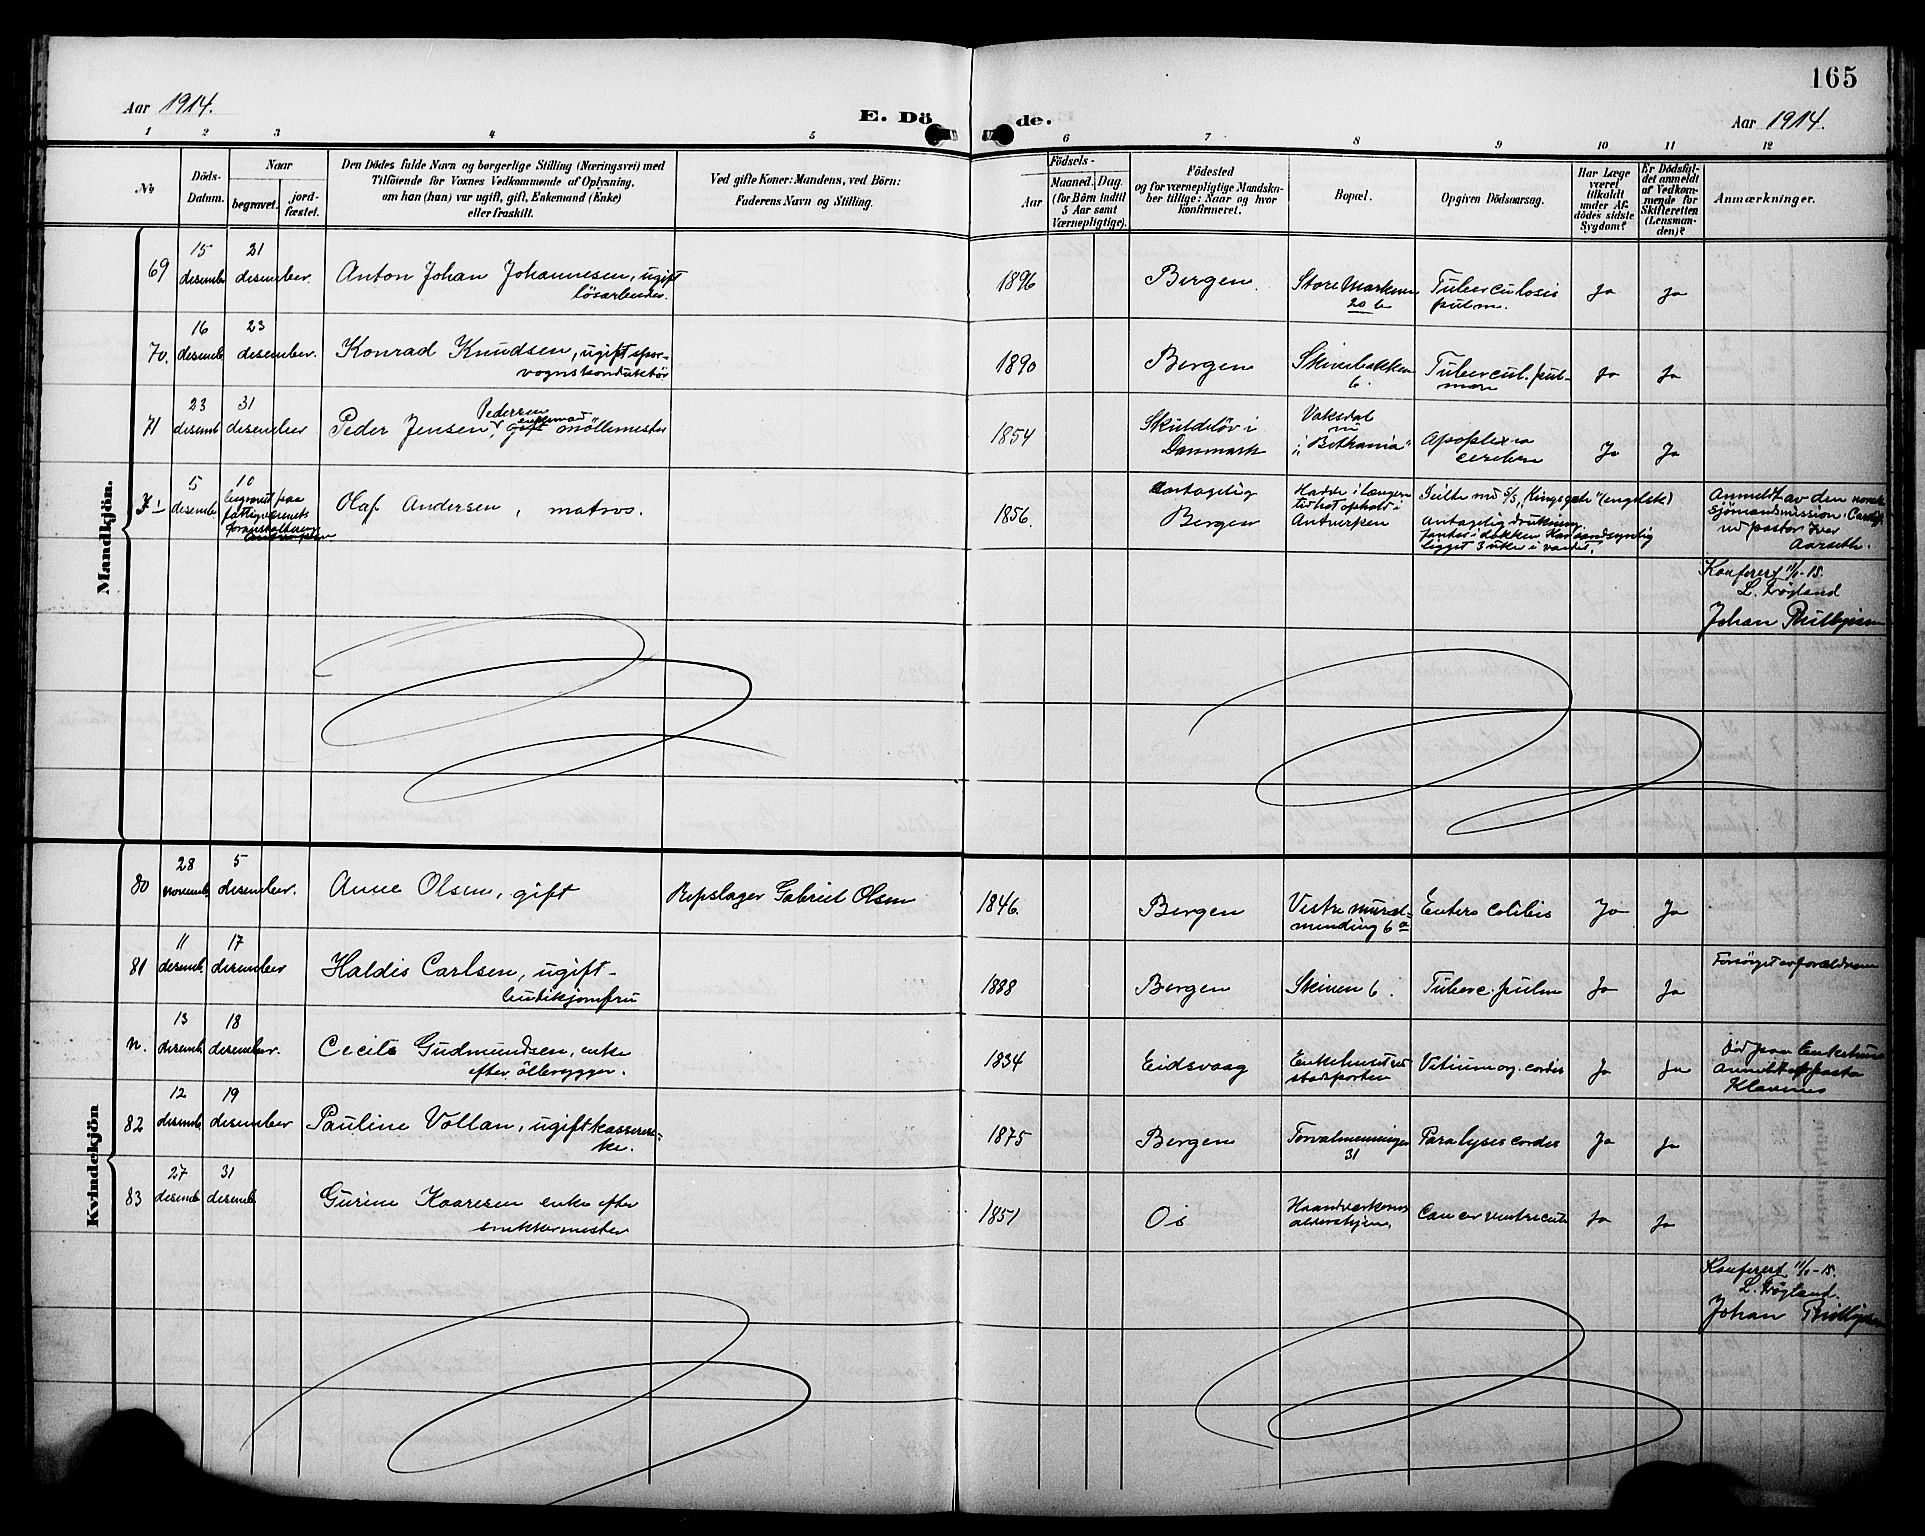 165
Aar 1914.
E. Dö de.
Aar 1914.
1 2 3 4 5 6 7 8 9 10 11 12
No
Döds-Datum.
Naar
begravet.
jord-fæstet.
Den Dödes fulde Navn og borgerlige Stilling (Næringsvei) med
Tilföiende for Voxnes Vedkommende af Oplysning,
om han (hun) var ugift, gift, Enkemand (Enke)
eller fraskilt.
Ved gifte Koner: Mandens, ved Börn:
Faderens Navn og Stilling.
Födsels-
Aar
Maaned. Dag.
(for Börn indtil
5 Aar samt
Værnepligtige).
Födested
og for værnepligtige Mandska-
ber tillige: Naar og hvor
konfirmeret.
Bopæl.
Opgiven Dödsaarsag.
Har Læge
været
tilkaldt
under Af-
dödes sidste
Sygdom?
Er Dödsfal-
det anmeldt
af Vedkom-
mende for
Skifteretten
(Lensman-
den)?
Anmærkninger.
Mandkjön.
69
15 desemb
21 desember.
Anton Johan Johannesen, ugift
løsarbeider.
1896
Bergen.
Store Markevei
20 b
Tuberculosis
pulm.
Ja
Ja
70.
16 desemb
23 desember.
Konrad Knudsen, ugift spor-
vognskonduktör
1890
Bergen
Skivebakken
6.
Tubercul. pul-
mon
Ja
Ja
71
23 desemb
31 desember
Pedersen
enkemand
Peder Jensen, gift möllemester
1854
Skuldelöv i
Danmark
Vaksdal
nu
i "Bethania"
Apoplexia
cerebri
Ja
Ja
5 desemb
10
begravet paa
fattigvæsenets
foranstaltning
Olaf Andersen, matros.
1856.
Antagelig
Bergen
Hadde i længere
tid hat ophold i
Antwerpen
Seilte med S/S "Kingsgate" (engelsk)
Antagelig drukning.
fundet i dokken. Har sandsynlig
ligget 3 uker i vandet.
Anmeldt av den norske
sjömandsmission, Cardiff
ved pastor Iver
Aarseth.
Konferert 11/1-15.
L. Frøyland
Johan
Kvindekjön
80
28 novemb
5 desember.
Anne Olsen, gift
Repslager Gabriel Olsen
1846.
Bergen
Vestre murAl-
mending 6 a
Entero colitis
Ja
Ja
81
11 desemb
17 desember
Haldis Carlsen, ugift
butikjomfru
1888
Bergen
Skiven 6.
Tuberc. pulm
Ja
Ja
Forsørget av forældrene
n.
13 desemb
18 desember.
Cecile Gudmundsen, enke
efter ölbrygger.
1834
Eidsvaag
Enkehuset ved
stadsporten
Vitium org. cordis
Ja
Ja
Död paa Enkehuset
Anmeldt af pastor
Klaveness
82
12 desemb
19 desember
Pauline Vollan, ugift kasserer-
ske.
1875
Bergen
Torvalmenningen
31
Paralysis cordis
Ja
Ja
83
27 desemb
31 desemb
Gurine Kaaresen enke efter
snekkermester
1851
Os
Haandverkernes
aldershjem.
Cancer ventriculi
Ja
Ja
Konferert 11/1-15.
L. Frøyland.
Johan